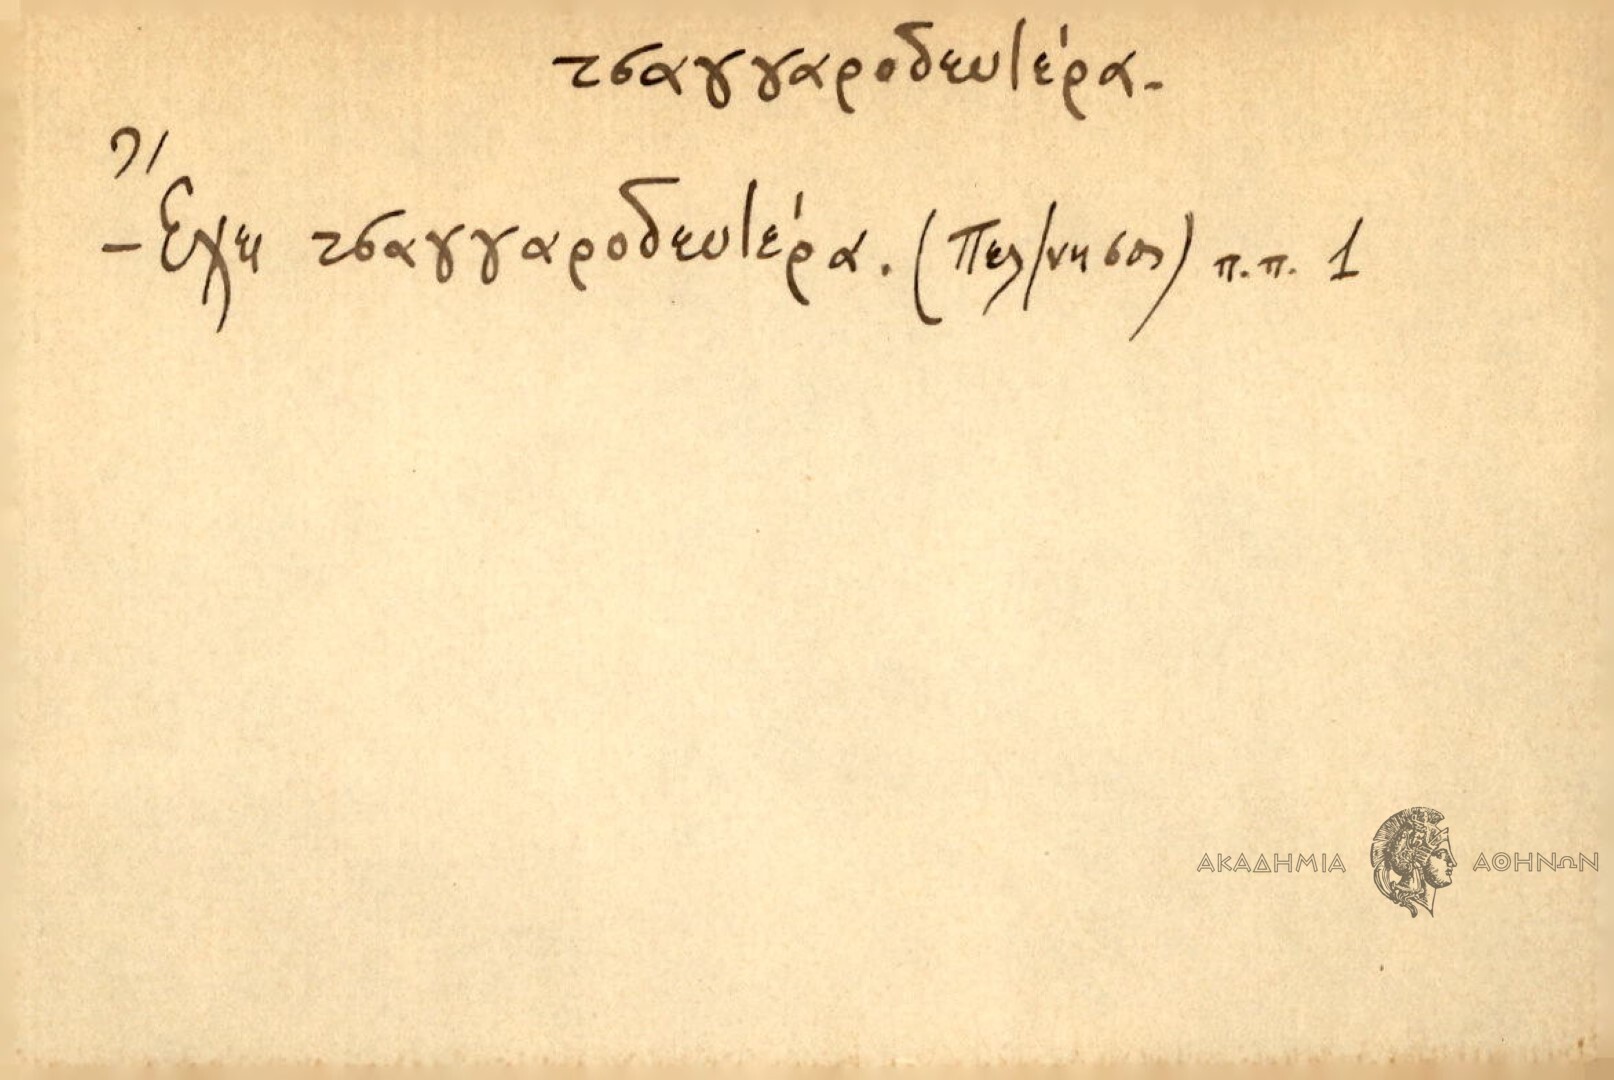 τσαγγαροδευτέρα.
- Ἔχει τσαγγαροδευτέρα. (Πελ/νησος) π.π. 1
ΑΚΑΔΗΜΙΑ ΑΘΗΝΩΝ